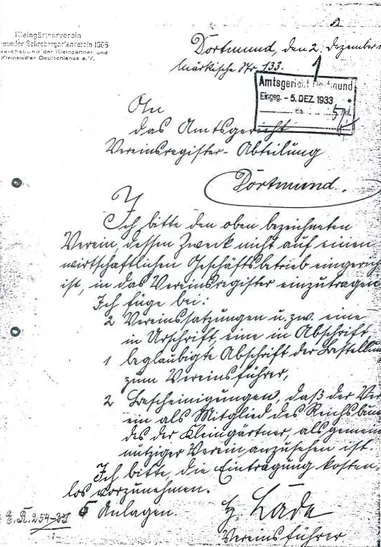 Kleingärtnerverein
Dortmunder Schrebergartenverein 1906
Reichsbund der Kleingärtner und
Kleinsiedler Deutschlands e.V.
Dortmund, den 2. Dezember
Märkische Str. 133.
Amtsgericht Dortmund
Eingeg. - 5. DEZ. 1933
An
das Amtsgericht
Vereinsregister-Abteilung
Dortmund.
Ich bitte den oben bezeichneten
Verein, dessen Zweck nicht auf einen
wirtschaftlichen Geschäftsbetrieb eingerich
ist, in das Vereinsregister einzutragen
Ich füge bei:
2 Vereinssatzungen u. zw. eine
in Urschrift, eine in Abschrift,
1 beglaubigte Abschrift der Bestellun
zum Vereinsführer,
2 Bescheinigungen, daß der Ver
ein als Mitglied des Reichsbun
des der Kleingärtner, allgemein
nütziger Verein anzusehen ist.
Ich bitte, die Eintragung kosten
los vorzunehmen.
5 Anlagen.
Vereinsführer